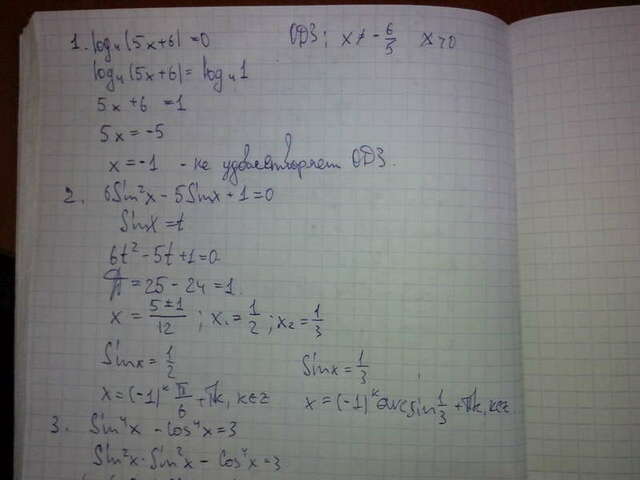 1. log₄(5x+6)=0 ОДЗ: x ≠ -6/5 x>0
log₄(5x+6)= log₄1
5x+6 =1
5x=-5
x=-1 - не удовлетворяет ОДЗ.
2. 6Sin²x-5Sinx+1=0
Sinx=t
6t²-5t+1=0
Д=25-24=1.
x = 5±1/12 ; x₁=1/2 ; x₂=1/3
Sinx=1/2 Sinx=1/3
x=(-1)ᵏ π/6 +πk, k∈z x=(-1)ᵏ arcsin 1/3 +πk, k∈z.
3. Sin⁴x - cos⁴x=3
Sin²x·Sin²x - cos⁴x=3